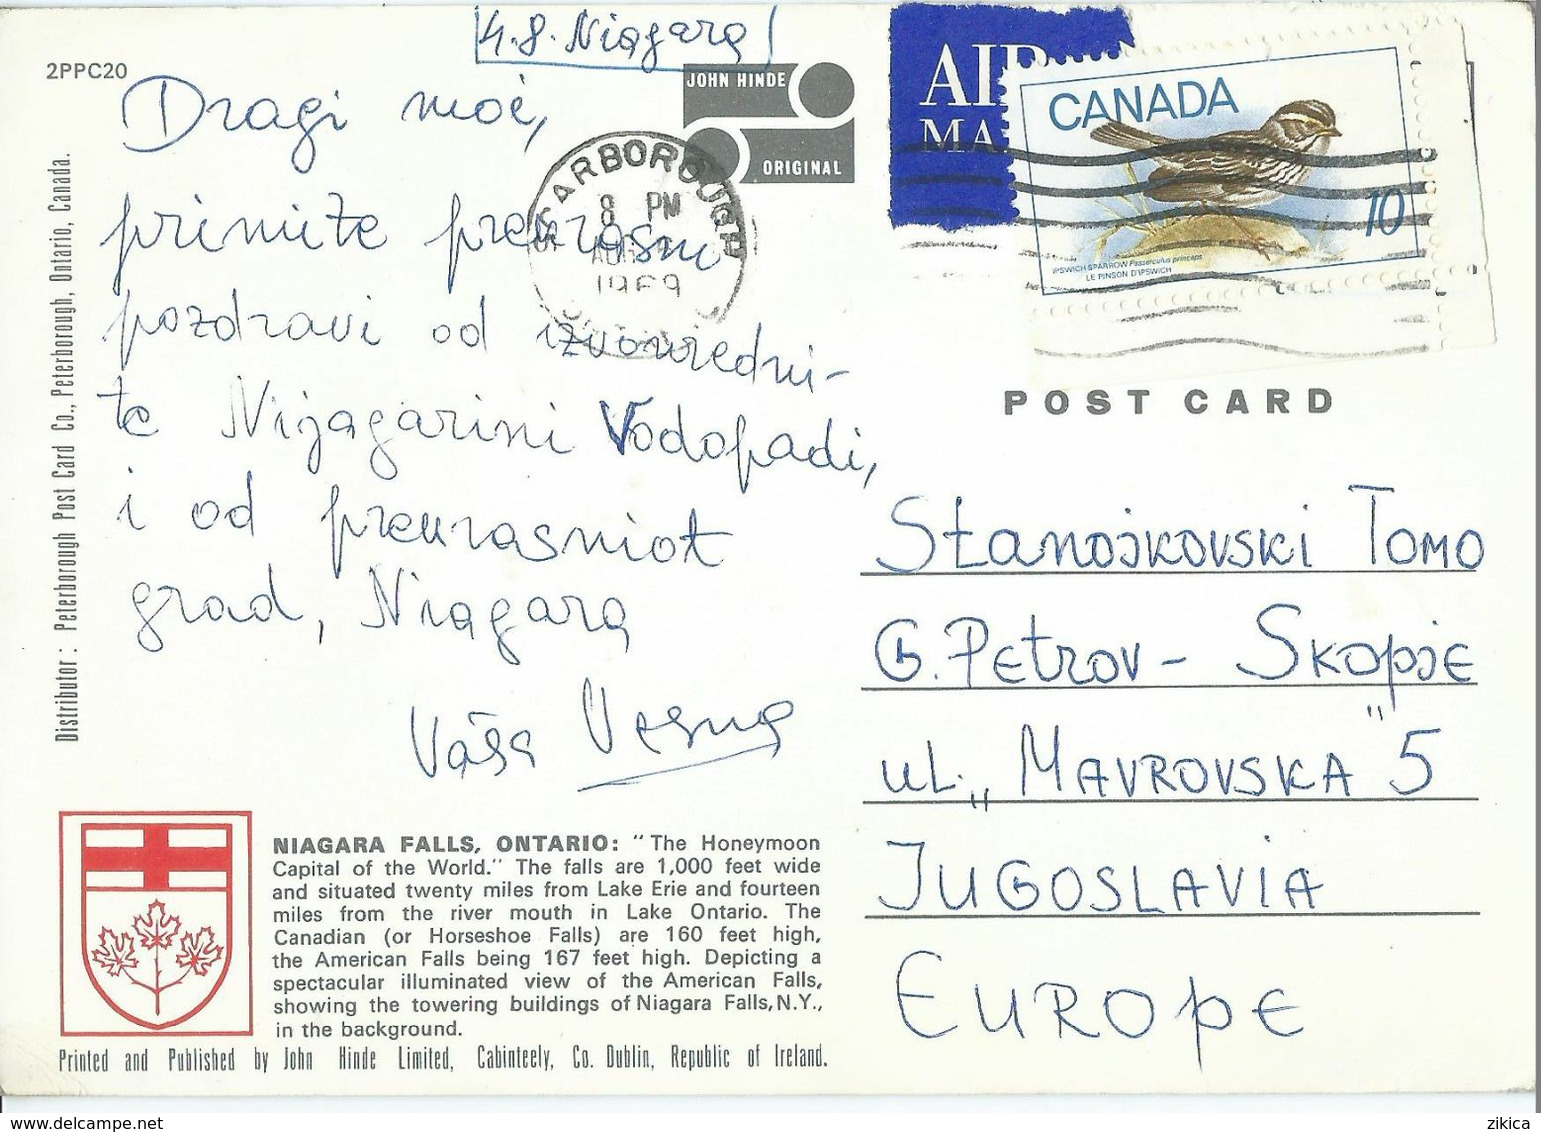 4.8. Niagara
2PPC20
JOHN HINDE
ORIGINAL
Dragi moi,
primite prekrasni
pozdravi od izvonredni-
te Nijagarini Vodopadi,
i od prekrasniot
grad, Niagara
Vaša Vesna
SCARBOROUGH
8 PM
AUG
1969
AIR
MA
CANADA
10
IPSWICH SPARROW Passerculus princeps
LE PINSON D'IPSWICH
POST CARD
Stanojkovski Tomo
G. Petrov - Skopje
ul. „Mavrovska" 5
Jugoslavia
Europe
Distributor: Peterborough Post Card Co., Peterborough, Ontario, Canada.
NIAGARA FALLS, ONTARIO: "The Honeymoon
Capital of the World." The falls are 1,000 feet wide
and situated twenty miles from Lake Erie and fourteen
miles from the river mouth in Lake Ontario. The
Canadian (or Horseshoe Falls) are 160 feet high,
the American Falls being 167 feet high. Depicting a
spectacular illuminated view of the American Falls,
showing the towering buildings of Niagara Falls, N.Y.,
in the background.
Printed and Published by John Hinde Limited, Cabinteely, Co. Dublin, Republic of Ireland.
www.delcampe.net
zikica